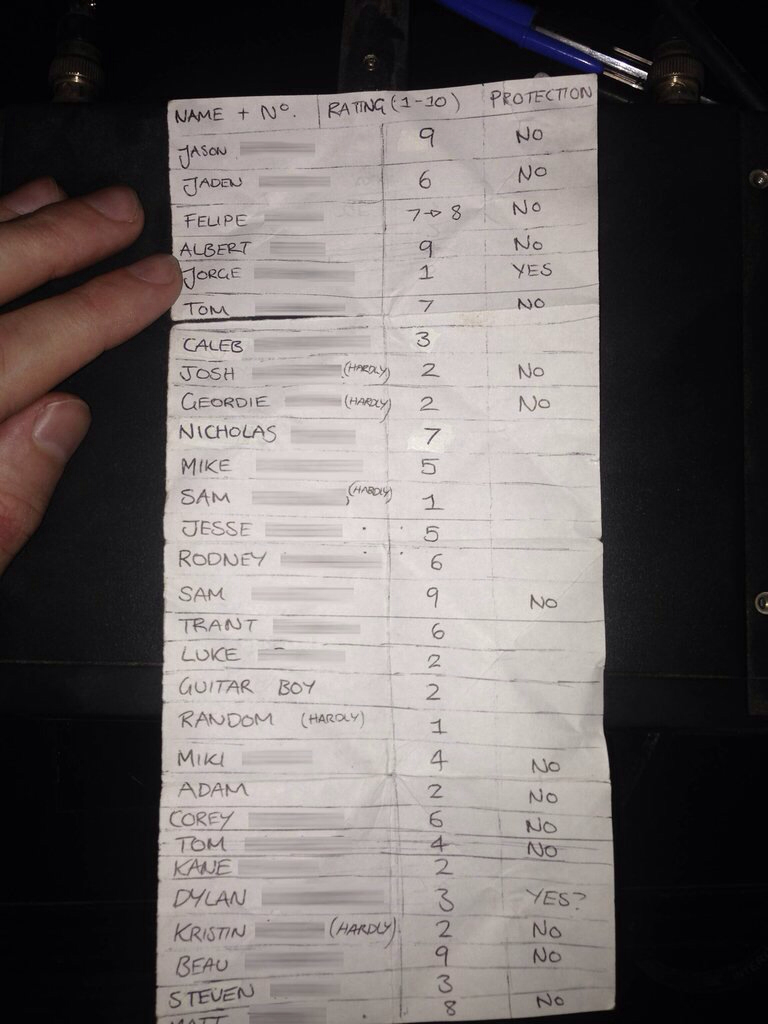 NAME + Nº. RATING (1-10) PROTECTION
JASON 9 NO
JADEN 6 NO
FELIPE 7→8 NO
ALBERT 9 NO
JORGE 1 YES
TOM 7 NO
CALEB 3
JOSH (HARDLY) 2 NO
GEORDIE (HARDLY) 2 NO
NICHOLAS 7
MIKE 5
SAM (HARDLY) 1
JESSE 5
RODNEY 6
SAM 9 NO
TRANT 6
LUKE 2
GUITAR BOY 2
RANDOM (HARDLY) 1
MIKI 4 NO
ADAM 2 NO
COREY 6 NO
TOM 4 NO
KANE 2
DYLAN 3 YES?
KRISTIN (HARDLY) 2 NO
BEAU 9 NO
STEVEN 3
MATT 8 NO